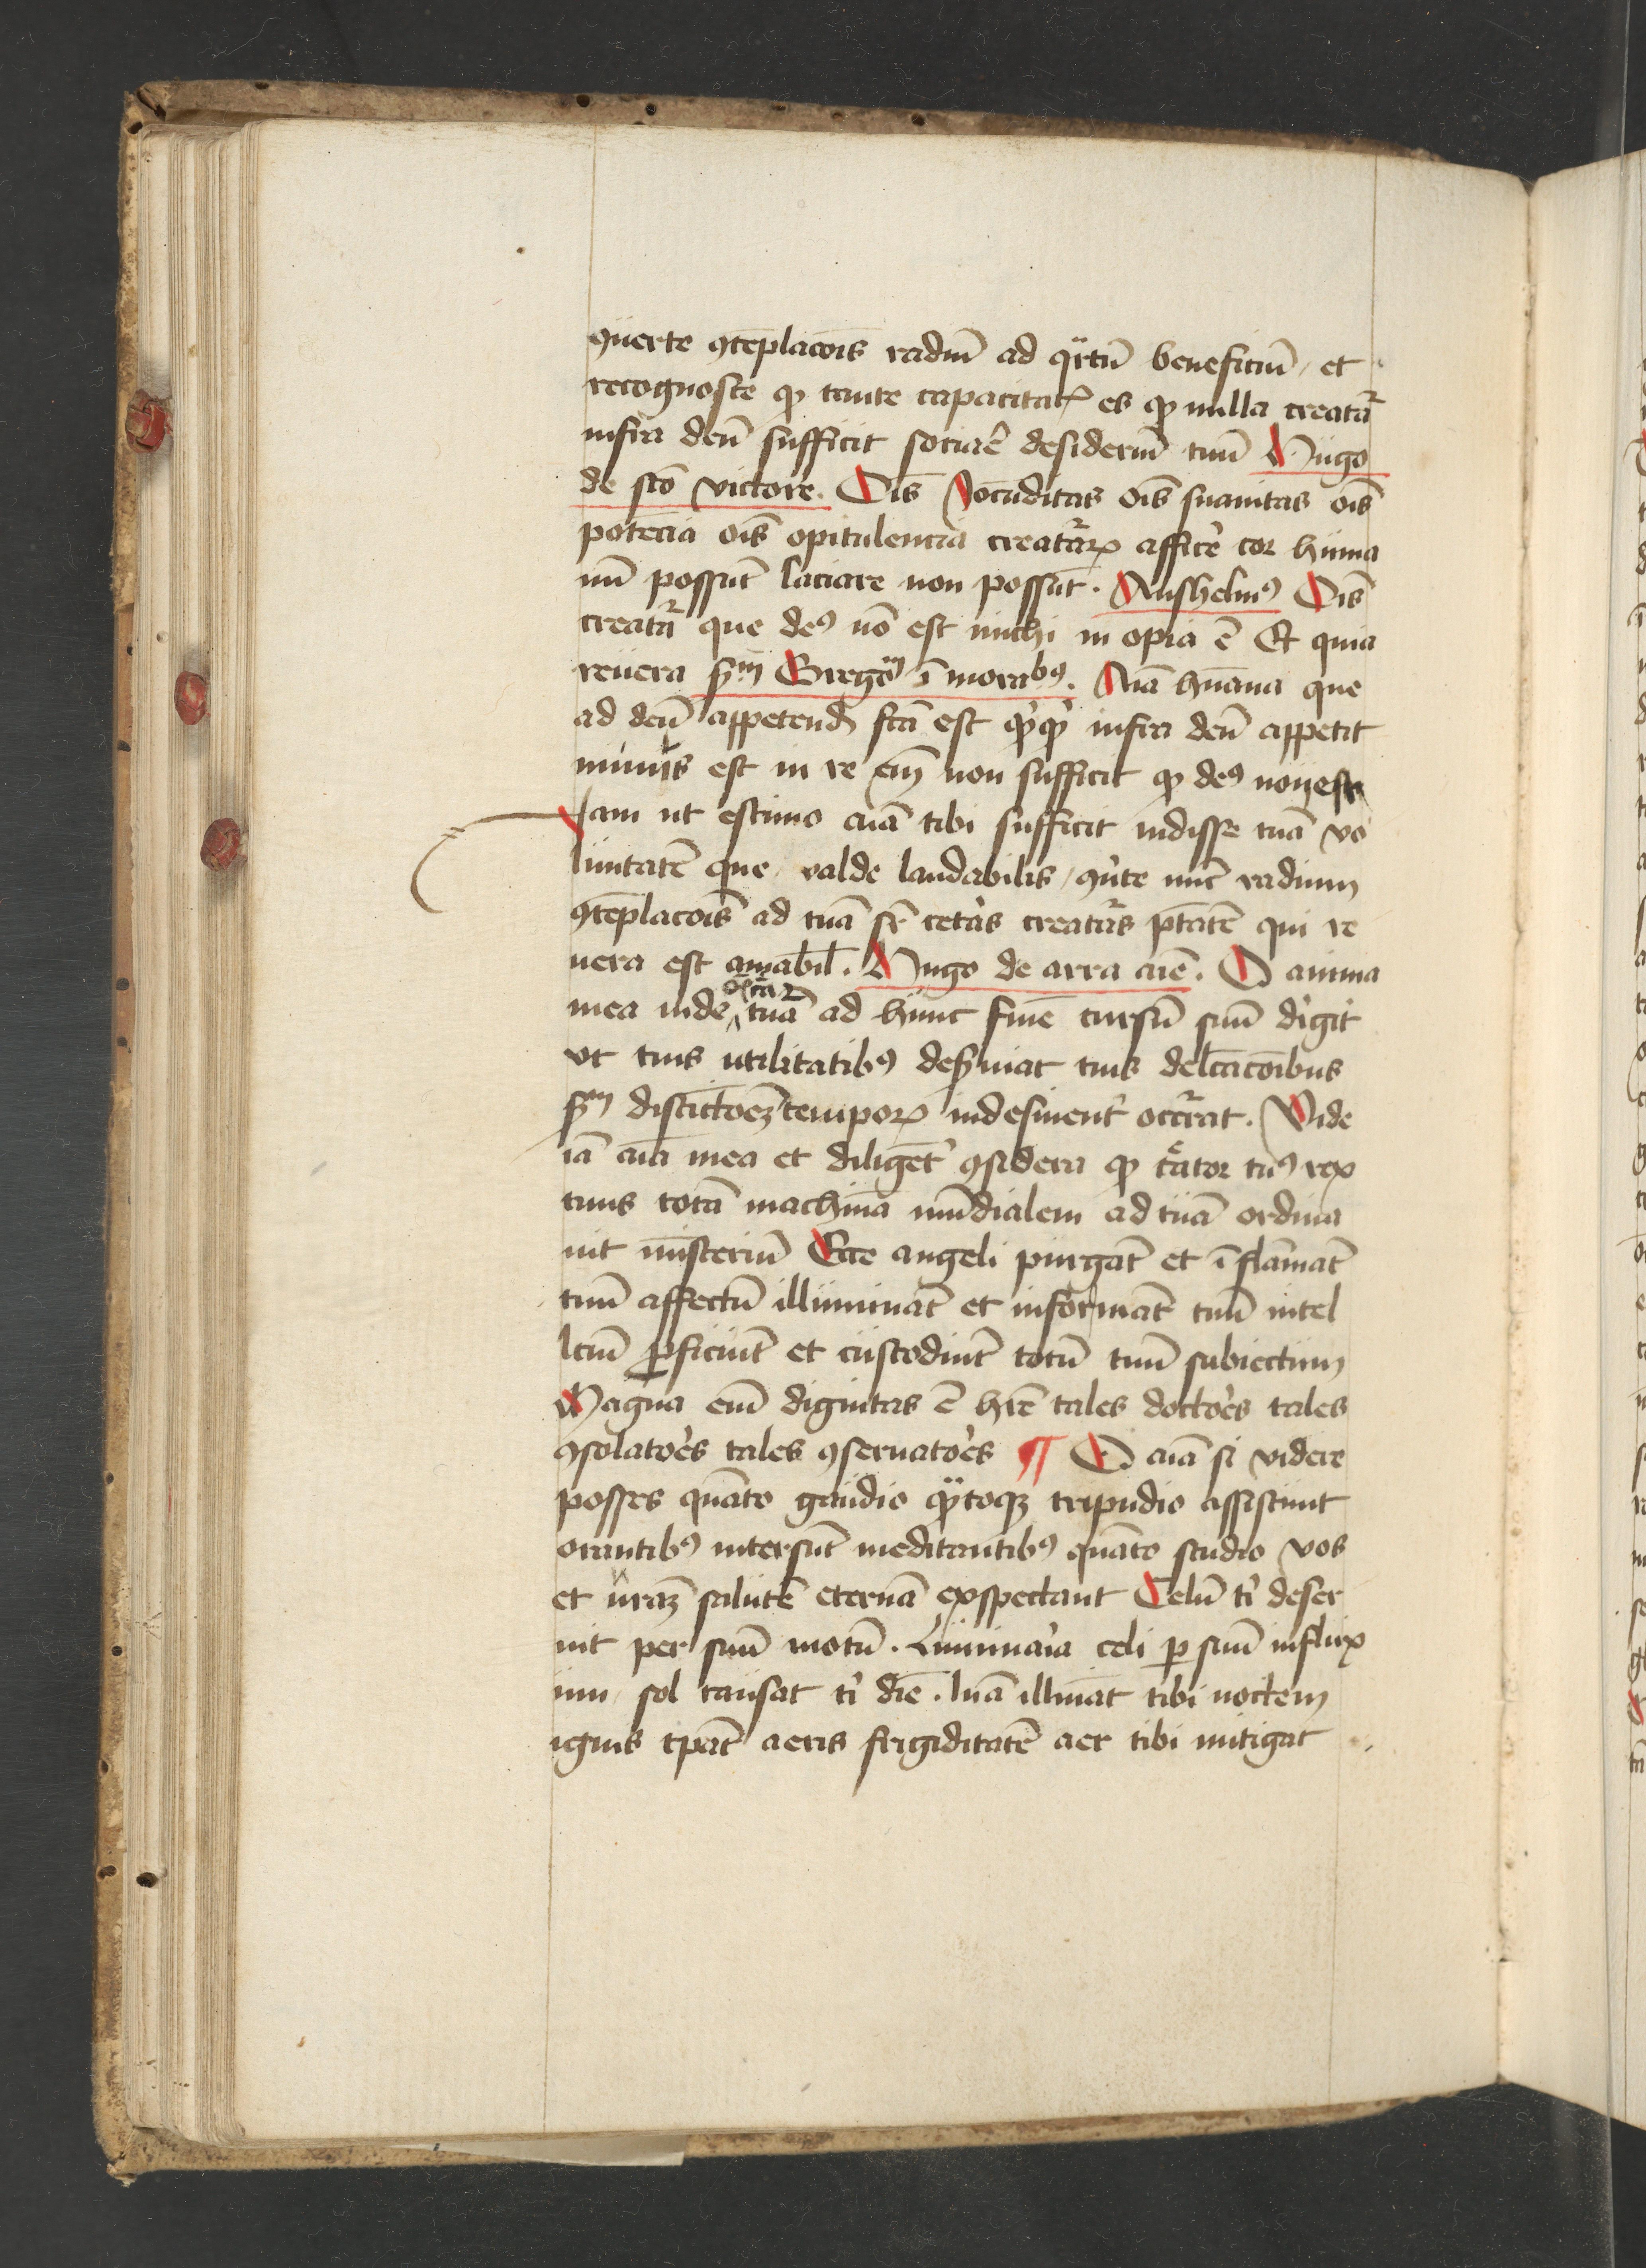 ꝯuerte ꝯteplacois radiu ad qrtu beneficiu / et
recognosce qꝫ tante capacitat es qꝫ nulla creatur
infra deu sufficit sociare desideriu tuu Hugo
de sco victore. Ois Iocuditas ois suauitas ois
potecia ois opitulencia creaturaꝝ afficere cor huma
nu possut saciare non possut. Anshelmꝰ Ois
creatura que deꝰ no est michi in opia e Et quia
reuera sm Grego i moraibꝰ. Aia humana que
ad deu appetend fca est qꝫqꝫ infra deu appetit
minus est iu re em non sufficit qꝫ deꝰ non est
Iam ut estimo aia tibi sufficit uidisse tua vo
luntate que / valde laudabilis / ꝯute nuc radium
ꝯteplacois ad tua sr ceteras creaturas ptate qui re
uera est amabil. Hugo de arra aie. O anima
mea uide ois crea tua ad hunc fine cursu suu dirigit
vt tuis utilitatibꝰ deseruiat tuis delcacoibus
sm distictoeꝫ temporꝝ indesinenter occurrat. Vide
ia aia mea et diligeter ꝯsidera qꝫ creator tuꝰ rex
tuus tota machina mudialem ad tua ordina
uit misteriu Ecce angeli purgat et i flamat
tuu affectu illuminat et informat tuu intel
lcm ꝑficiut et custodiut totu tuu subiectum
Magna em dignitas e hre tales doctores tales
ꝯsolatores tales ꝯseruatores ¶ O aia si videre
posses quato gaudio qꝫtoqꝫ tripudio assistunt
orantibꝰ intersut meditantibꝰ quato studio vos
et vraꝫ salute eterna exspectant Celu ti deser
uit per suu motu. Luminaria celi ꝑ suu influx
um / sol causat ti die. luna illuiat tibi noctem
ignis tpat aeris frigiditate aer tibi mitigat